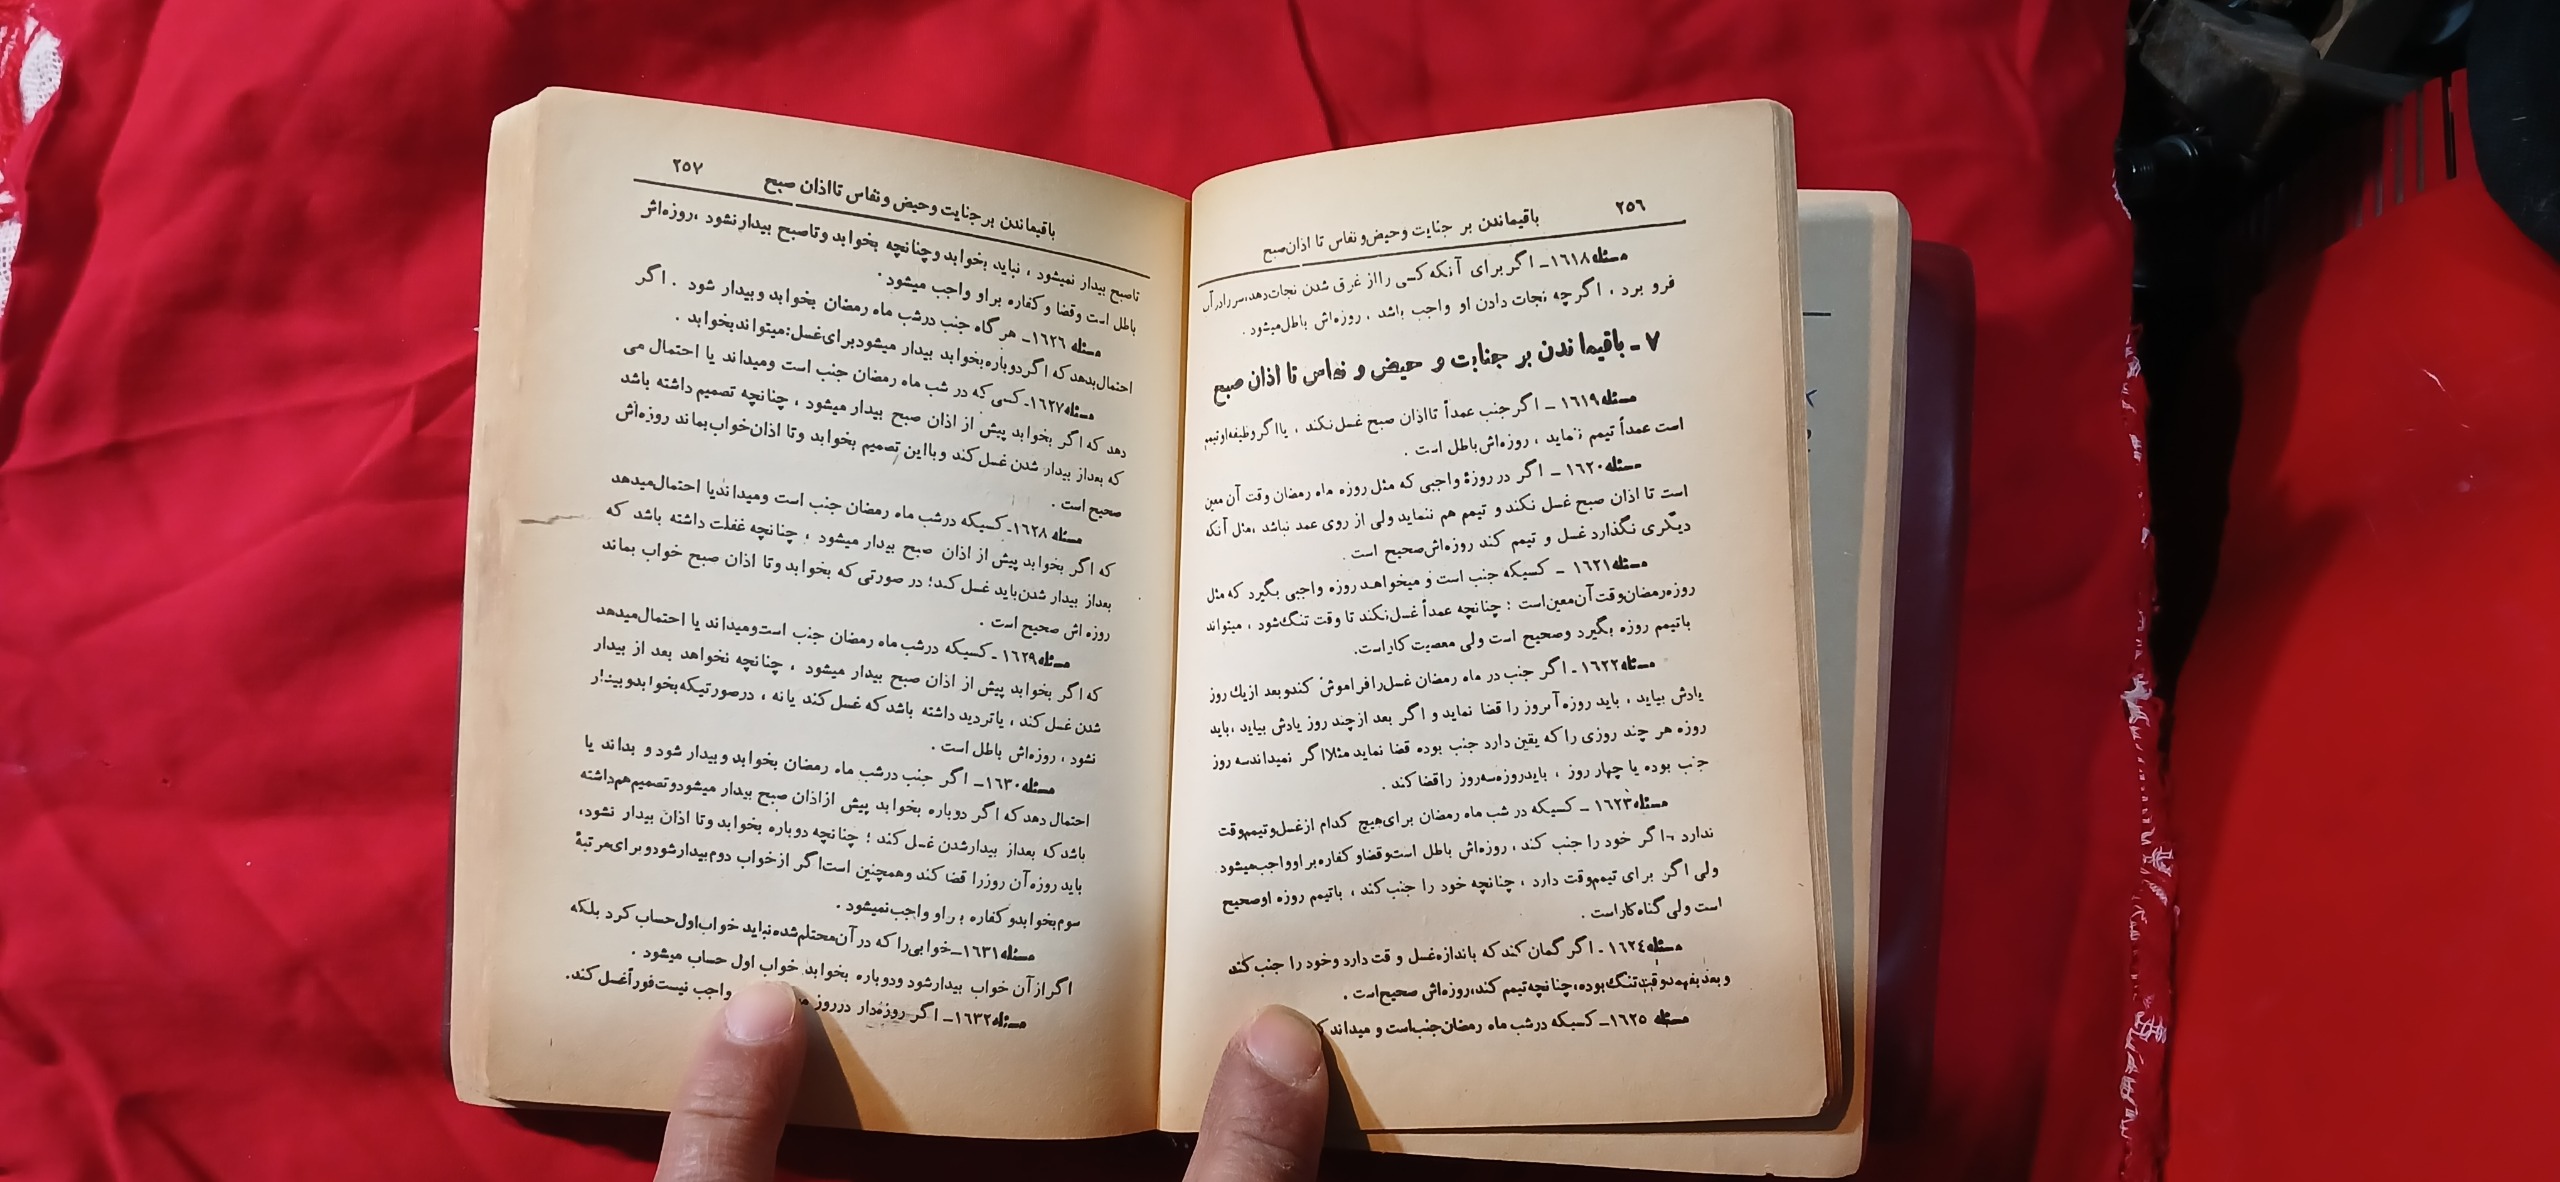 ٢٥٦
باقیماندن بر جنابت وحیض و نفاس تا اذان صبح
مسئله١٦١٨ـ اگر برای آنکه کسی را از غرق شدن نجات دهد، سر را در آب
فرو برد ، اگرچه نجات دادن او واجب باشد ، روزه‌اش باطل میشود .
٧ ـ باقیماندن بر جنابت و حیض و نفاس تا اذان صبح
مسئله١٦١٩ ـ اگر جنب عمداً تا اذان صبح غسل نکند ، یا اگر وظیفه او تیمم
است عمداً تیمم ننماید ، روزه‌اش باطل است .
مسئله١٦٢٠ ـ اگر در روزهٔ واجبی که مثل روزه ماه رمضان وقت آن معین
است تا اذان صبح غسل نکند و تیمم هم ننماید ولی از روی عمد نباشد ، مثل آنکه
دیگری نگذارد غسل و تیمم کند روزه‌اش صحیح است .
مسئله١٦٢١ ـ کسیکه جنب است و میخواهد روزه واجبی بگیرد که مثل
روزه رمضان وقت آن معین است : چنانچه عمداً غسل نکند تا وقت تنگ شود ، میتواند
با تیمم روزه بگیرد وصحیح است ولی معصیت کار است.
مسئله١٦٢٢ـ اگر جنب در ماه رمضان غسل را فراموش کند و بعد از یك روز
یادش بیاید ، باید روزه آنروز را قضا نماید و اگر بعد از چند روز یادش بیاید ، باید
روزه هر چند روزی را که یقین دارد جنب بوده قضا نماید مثلا اگر نمیداند سه روز
جنب بوده یا چهار روز ، باید روزه سه روز را قضا کند .
مسئله١٦٢٣ ـ کسیکه در شب ماه رمضان برای هیچ کدام از غسل و تیمم وقت
ندارد ، اگر خود را جنب کند ، روزه‌اش باطل است و قضا و کفاره بر او واجب میشود
ولی اگر برای تیمم وقت دارد ، چنانچه خود را جنب کند ، با تیمم روزه او صحیح
است ولی گناه کار است .
مسئله١٦٢٤ ـ اگر گمان کند که باندازه غسل وقت دارد وخود را جنب کند
و بعد بفهمد وقت تنگ بوده، چنانچه تیمم کند، روزه‌اش صحیح است .
مسئله ١٦٢٥ـ کسیکه در شب ماه رمضان جنب است و میداند
٢٥٧
باقیماندن بر جنابت وحیض ونفاس تا اذان صبح
تاصبح بیدار نمیشود ، نباید بخوابد وچنانچه بخوابد وتاصبح بیدار نشود ، روزه‌اش
باطل است وقضا و کفاره بر او واجب میشود .
مسئله ١٦٢٦ـ هر گاه جنب در شب ماه رمضان بخوابد وبیدار شود . اگر
احتمال بدهد که اگر دوباره بخوابد بیدار میشود برای غسل: میتواند بخوابد .
مسئله١٦٢٧ـ کسی که در شب ماه رمضان جنب است ومیداند یا احتمال می
دهد که اگر بخوابد پیش از اذان صبح بیدار میشود ، چنانچه تصمیم داشته باشد
که بعد از بیدار شدن غسل کند وبا این تصمیم بخوابد وتا اذان خواب بماند روزه‌اش
صحیح است .
مسئله ١٦٢٨ـ کسیکه در شب ماه رمضان جنب است ومیداند یا احتمال میدهد
که اگر بخوابد پیش از اذان صبح بیدار میشود ، چنانچه غفلت داشته باشد که
بعد از بیدار شدن باید غسل کند؛ در صورتی که بخوابد وتا اذان صبح خواب بماند
روزه اش صحیح است .
مسئله١٦٢٩ـ کسیکه در شب ماه رمضان جنب است ومیداند یا احتمال میدهد
که اگر بخوابد پیش از اذان صبح بیدار میشود ، چنانچه نخواهد بعد از بیدار
شدن غسل کند ، یا تردید داشته باشد که غسل کند یا نه ، در صورتیکه بخوابد وبیدار
نشود ، روزه‌اش باطل است .
مسئله١٦٣٠ـ اگر جنب در شب ماه رمضان بخوابد وبیدار شود و بداند یا
احتمال دهد که اگر دوباره بخوابد پیش از اذان صبح بیدار میشود و تصمیم هم داشته
باشد که بعد از بیدار شدن غسل کند ؛ چنانچه دوباره بخوابد وتا اذان بیدار نشود،
باید روزه آن روز را قضا کند وهمچنین است اگر از خواب دوم بیدار شود و برای مرتبهٔ
سوم بخوابد و کفاره بر او واجب نمیشود .
مسئله١٦٣١ـ خوابی را که در آن محتلم شده نباید خواب اول حساب کرد بلکه
اگر از آن خواب بیدار شود ودوباره بخوابد خواب اول حساب میشود .
مسئله١٦٣٢ـ اگر روزه‌دار در روز واجب نیست فوراً غسل کند.